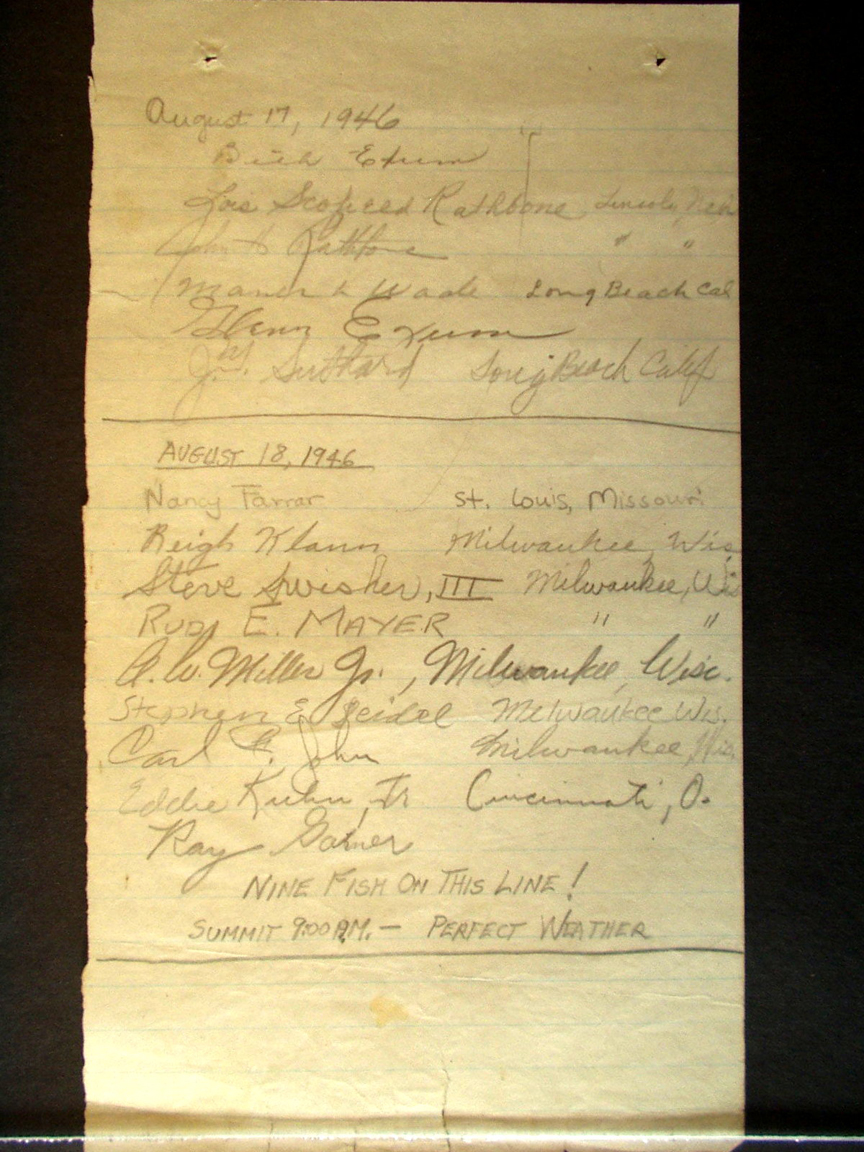 August 17, 1946
Beth Exum
Lois Rathbone Lincoln, Neb
John Rathbone " "
Wade Long Beach Cal
Glenn Exum
Long Beach Calif
AUGUST 18, 1946
Nancy Farrar St. Louis, Missouri
Reigh Klann Milwaukee, Wis
Steve Swisher, III Milwaukee, Wis
RUDY E. MAYER " "
A. W. Miller Jr., Milwaukee, Wisc.
Stephen E Seidel Milwaukee Wis.
Carl F. John Milwaukee, Wis.
Eddie Kuhn, Jr Cincinnati, O.
Ray Garner
NINE FISH ON THIS LINE!
SUMMIT 9:00 A.M. — PERFECT WEATHER